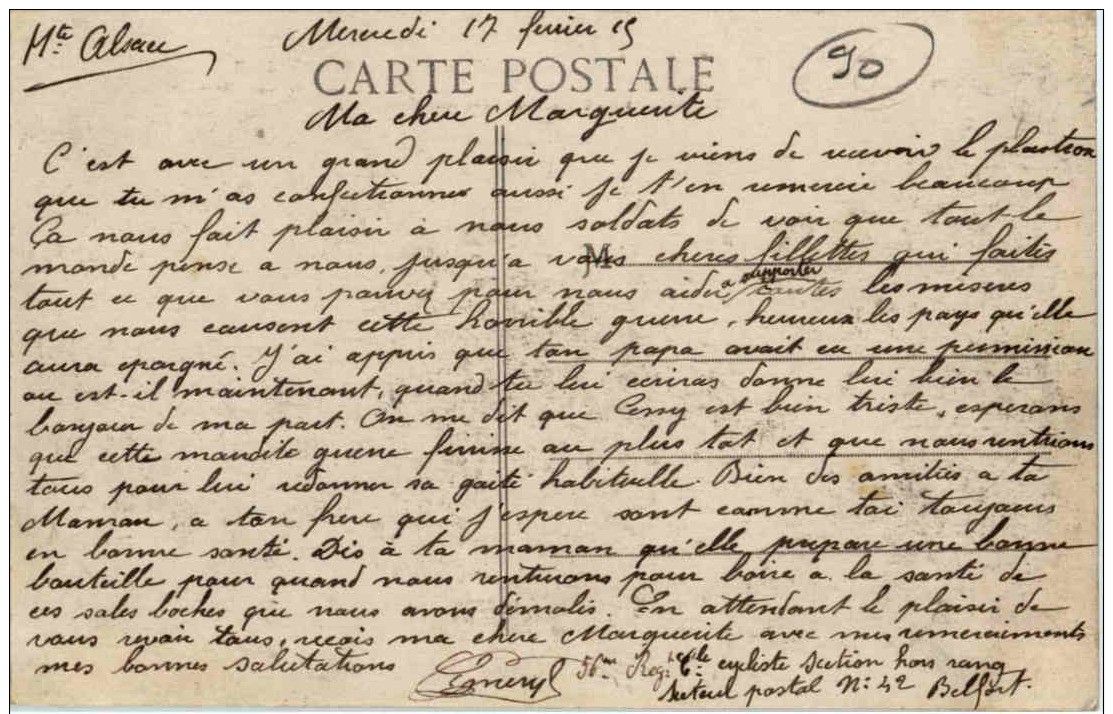 Hte Alsace
Mercredi 17 fevrier 15
90
CARTE POSTALE
Ma chere Marguerite
C'est avec un grand plaisir que je viens de recevoir le plastron
que tu m'as confectionner aussi je t'en remercie beaucoup
Ça nous fait plaisir a nous soldats de voir que tout le
monde pense a nous, jusqu'a vous cheres fillettes qui faites
tout ce que vous pouvez pour nous aider a supporter toutes les miseres
que nous causent cette horrible guerre, heureux les pays qu'elle
aura epargné. J'ai appris que ton papa avait eu une permission
ou est-il maintenant, quand tu lui ecriras donne lui bien le
bonjour de ma part. On me dit que Cessy est bien triste, esperons
que cette maudite guerre finisse au plus tot et que nous rentrions
tous pour lui redonner sa gaité habituelle. Bien des amitiés a ta
Maman, a ton frere qui j'espere sont comme toi toujours
en bonne santé. Dis à ta maman qu'elle prepare une bonne
bouteille pour quand nous rentrerons pour boire a la santé de
ces sales boches que nous avons démolis. En attendant le plaisir de
vous revoir tous, recois ma chere Marguerite avec mes remerciements
mes bonnes salutations
56me Reg. cycliste section hors rang
Secteur postal No 42 Belfort.